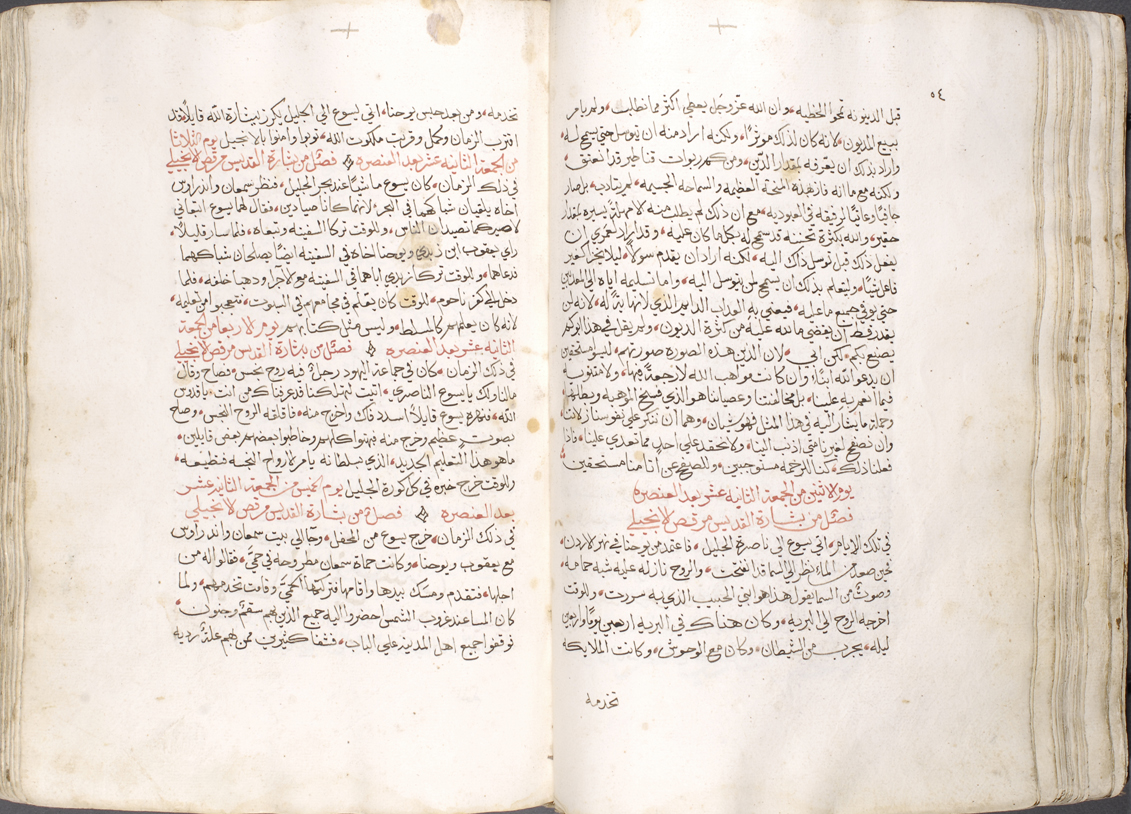 ٥٤
قبل الدينونه تمحوا الخطيه، وان الله عز وجل يعطي اكثر مما نطلب، ولم يامر
ببيع المديون لانه كان لذلك موثرًا، ولكنه اراد منه ان يتوسل حتي يسمح له
واراد بذلك ان يعرفه مقدار الدين، ومن كم ربوات قناطير قد انعتق
ولكنه مع ما انه فاز بهذه المنحة العظيمه والسماحه الجسيمه، لم يتادب بل صار
جافيًا وعاتيًا لرفيقه في العبوديه، مع ان ذلك لم يطلب منه الا مهلة يسيره لمقدار
حقير، وانه بكثرة تحننه قد سمح له بكلما كان عليه، وقد اراد لعمري ان
يفعل ذلك قبل توسل ذاك اليه، لكنه اراد ان يقدم سولاً، ليلا
فاعلتيًا، وليتعلم بذلك ان يسمح لمن يتوسل اليه، واما تسليمه اياه الي المعذبين
حتي يوفي جميع ما عليه، فيعني به العذاب الدايم الذي لانهاية له، لانه لن
يقدر قط ان يقضي ما لله عليه من كثرة الديون، ولم يقل في هذا ابوكم
يصنع بكم، لكن ابي، لان الذين هذه الصورة صورتهم، ليسوا مستحقين
ان يدعو الله ابًا، وان كانت مواهب الله لا رجعة فيها، ولا
فيما انعم به علينا، بل مخالفتنا وعصياننا هو الذي فسخ الموهبه وبطلها
وجملة ما يشار اليه في هذا المثل فهو شيان، وهما ان ننكر علي نفوسنا زلاتنا
وان نصفح لغيرنا متي اذنب الينا، ولا نحقد علي احد مما تعدي علينا، فاذا
فعلنا ذلك، كنا للرحمه مستوجبين، وللصفح عن اثامنا مستحقين
يوم الاتنين من الجمعة الثانيه عشر بعد العنصره
فصل من بشارة القديس مرقص الانجيلي
في تلك الايام، اتي يسوع الي ناصرة الجليل، فاعتمد من يوحنا في نهر الاردن،
فحين صعد من الماء نظر الي السما قد انفتحت، والروح نازله عليه شبه حمامه،
وصوت من السما يقول هذا هو ابني الحبيب الذي به سررت، وللوقت
اخرجه الروح الي البريه، وكان هناك في البريه اربعين يومًا واربعين
ليله، يجرب من الشيطان، وكان مع الوحوش، وكانت الملايكه
تخدمه
تخدمه، ومن بعد حبس يوحنا، اتي يسوع الي الجليل يكرز ببشارة الله قايلاً قد
اقترب الزمان وكمل وقربت ملكوت الله، توبوا وامنوا بالانجيل يوم الثلاثا
من الجمعة الثانيه عشر بعد العنصره فصل من بشارة القديس مرقص الانجيلي
في ذلك الزمان، كان يسوع ماشيًا عند بحر الجليل، فنظر سمعان واندراوس
اخاه يلقيان شباكهما في البحر، لانهما كانا صيادين، فقال لهما يسوع اتبعاني
لاصيركما تصيدان الناس، وللوقت تركا السفينه وتبعاه، فلما سار قليلاً،
راي يعقوب ابن زبدي ويوحنا اخاه في السفينه ايضًا يصلحان شباكهما
فدعاهما، وللوقت تركا زبدي اباهما في السفينه مع الاجرا وذهبا خلفه، فلما
دخل الي كفرناحوم، للوقت كان يعلم في مجامعهم في السبوت، فتعجبوا من تعليمه،
لانه كان يعلمهم كالمسلط، وليس مثل كتابهم يوم الاربعا من الجمعة
الثانيه عشر بعد العنصره فصل من بشارة القديس مرقص الانجيلي
في ذلك الزمان، كان في جماعة اليهود رجل فيه روح نجس، فصاح وقال
ما لنا ولك يا يسوع الناصري، اتيت لتهلكنا قد عرفناك من انت، يا قدوس
الله، فنهره يسوع قايلاً اسدد فاك واخرج منه، فاقلقه الروح النجس، وصاح
بصوت عظيم وخرج منه، فبهتوا كلهم وخاطبوا بعضهم بعض قايلين،
ما هو هذا التعليم الجديد، الذي بسلطانه يامر الارواح النجسه فتطيعه،
وللوقت خرج خبره في كل كورة الجليل يوم الخميس من الجمعة الثانية عشر
بعد العنصره فصل من بشارة القديس مرقص الانجيلي
في ذلك الزمان، خرج يسوع من المحفل، وجا الي بيت سمعان واندراوس
مع يعقوب ويوحنا، وكانت حماة سمعان مطروحه في حمي، فقالوا له من
اجلها، فتقدم ومسك بيدها واقامها فتركتها الحمي، وقامت تخدمهم، ولما
كان المسا عند غروب الشمس احضروا اليه جميع الذين بهم سقم وجنون،
توقفوا جميع اهل المدينه علي الباب، فشفا كثيرين ممن بهم علة رديه